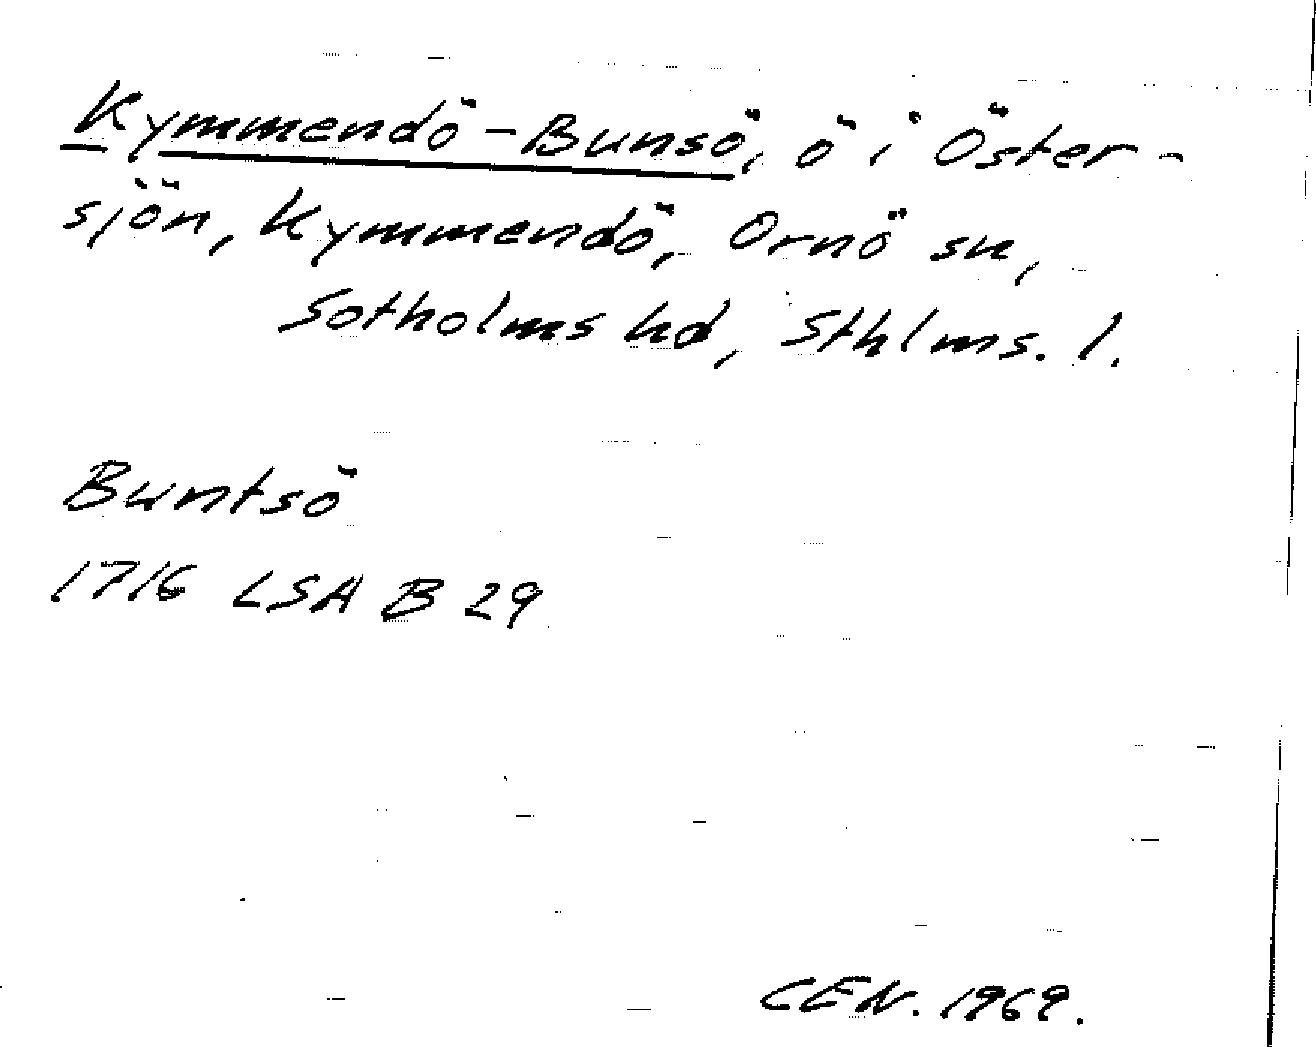 Kymmendö-Bunsö, ö i Öster-
sjön, Kymmendö, Ornö sn,
Sotholms hd, Sthlms. l.
Buntsö
1716 LSA B 29
CEN. 1969.